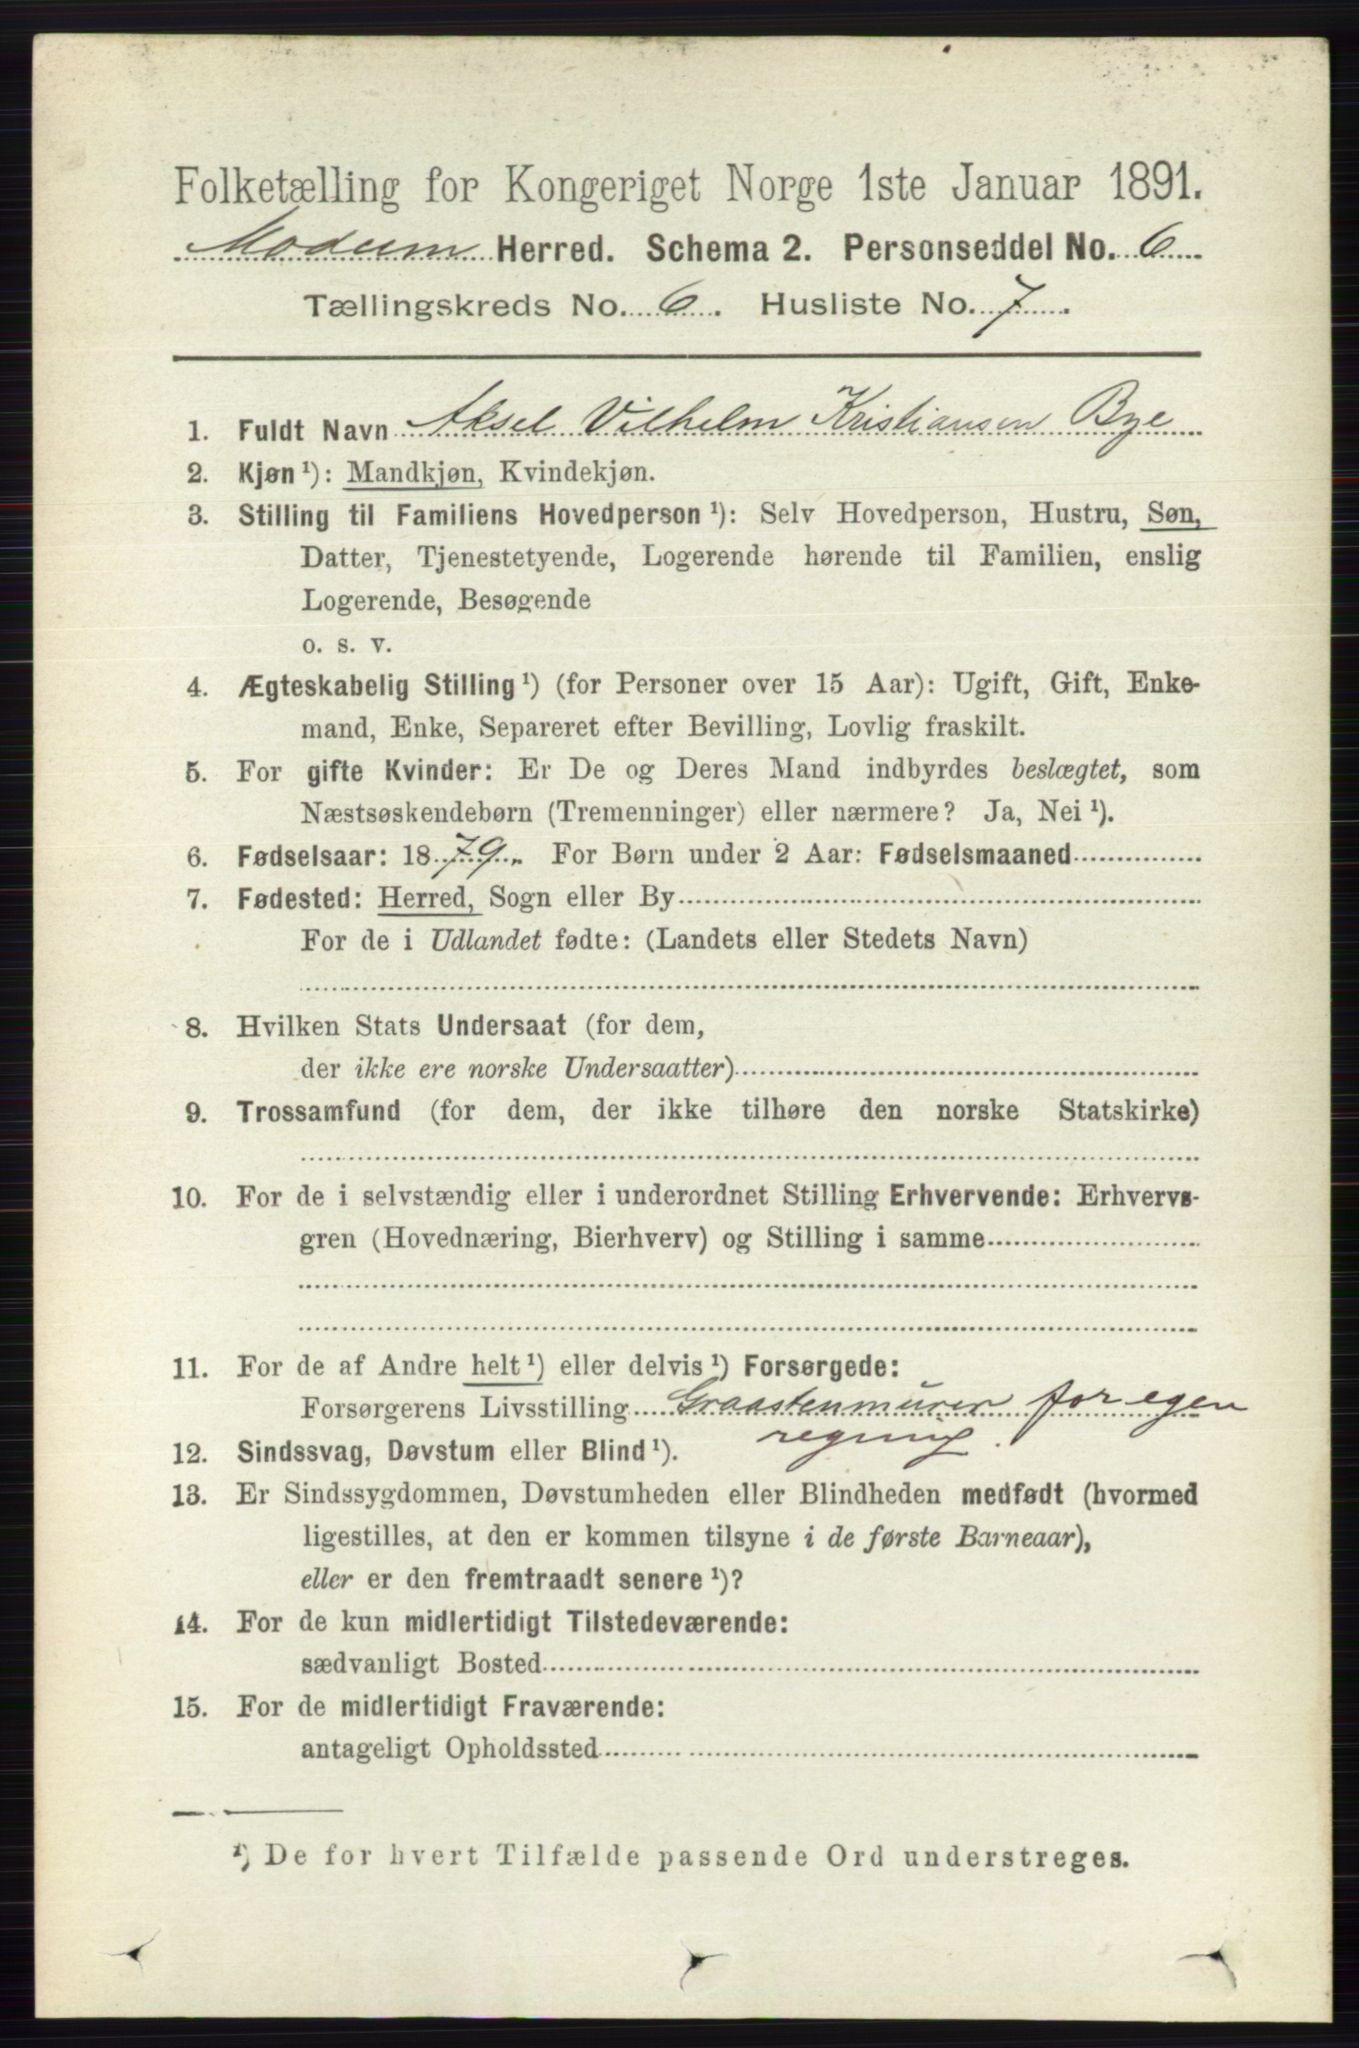 Folketælling for Kongeriget Norge 1ste Januar 1891.
Modum Herred. Schema 2. Personseddel No. 6
Tællingskreds No. 6. Husliste No. 7.
1. Fuldt Navn Aksel Vilhelm Kristiansen Bye
2. Kjøn¹): Mandkjøn, Kvindekjøn.
3. Stilling til Familiens Hovedperson¹): Selv Hovedperson, Hustru, Søn,
Datter, Tjenestetyende, Logerende hørende til Familien, enslig
Logerende, Besøgende
o. s. v.
4. Ægteskabelig Stilling¹) (for Personer over 15 Aar): Ugift, Gift, Enke-
mand, Enke, Separeret efter Bevilling, Lovlig fraskilt.
5. For gifte Kvinder: Er De og Deres Mand indbyrdes beslægtet, som
Næstsøskendebørn (Tremenninger) eller nærmere? Ja, Nei¹).
6. Fødselsaar: 1879. For Børn under 2 Aar: Fødselsmaaned
7. Fødested: Herred, Sogn eller By
For de i Udlandet fødte: (Landets eller Stedets Navn)
8. Hvilken Stats Undersaat (for dem,
der ikke ere norske Undersaatter)
9. Trossamfund (for dem, der ikke tilhøre den norske Statskirke)
10. For de i selvstændig eller i underordnet Stilling Erhvervende: Erhvervs-
gren (Hovednæring, Bierhverv) og Stilling i samme
11. For de af Andre helt¹) eller delvis¹) Forsørgede:
Forsørgerens Livsstilling Graastenmurer for egen
regning.
12. Sindssvag, Døvstum eller Blind¹).
13. Er Sindssygdommen, Døvstumheden eller Blindheden medfødt (hvormed
ligestilles, at den er kommen tilsyne i de første Barneaar),
eller er den fremtraadt senere¹)?
14. For de kun midlertidigt Tilstedeværende:
sædvanligt Bosted
15. For de midlertidigt Fraværende:
antageligt Opholdssted
¹) De for hvert Tilfælde passende Ord understreges.